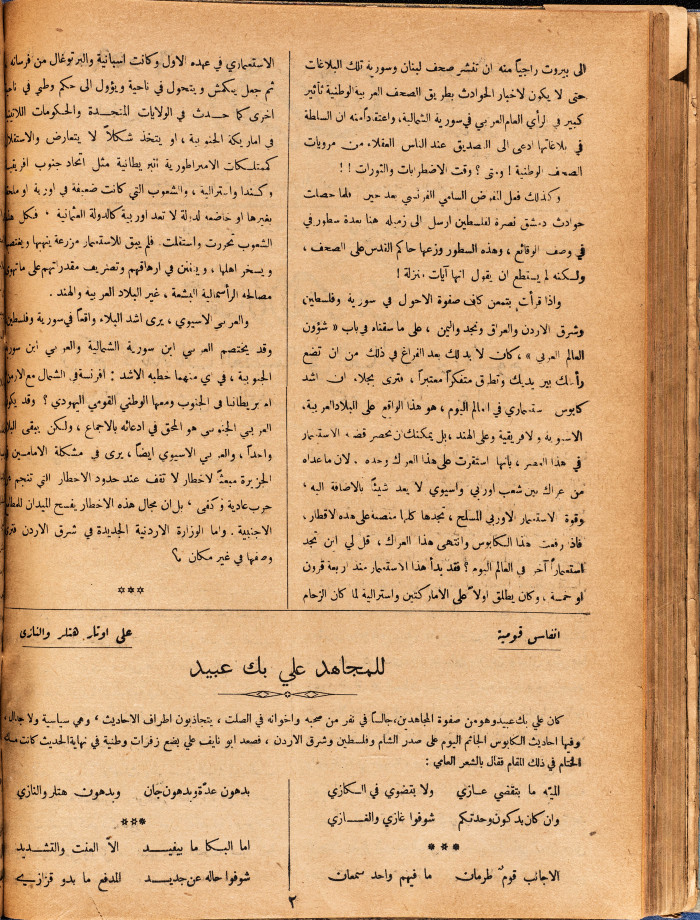 الى بيروت راجياً منه ان تنشر صحف لبنان وسورية تلك البلاغات
حتى لا يكون لاخبار الحوادث بطريق الصحف العربية الوطنية تأثير
كبير في الرأي العام العربي في سورية الشمالية، واعتقد أمنه ان السلطة
في بلاغاتها ادعى الى التصديق عند الناس العقلاء من مرويات
الصحف الوطنية! ومتى؟ وقت الاضطرابات والثورات!!
وكذلك فعل المفوض السامي الفرنسي بعد حين فلما حصلت
حوادث دمشق نصرة لفلسطين ارسل الى زميله هنا بعدة سطور في
في وصف الوقائع، وهذه السطور وزعها حاكم القدس على الصحف،
ولكنه لم يستطع ان يقول انها آيات منزلة!
واذا قرأت بتمعن كاف صفوة الاحول في سورية وفلسطين
وشرق الاردن والعراق ونجد واليمن، على ما سقناه في باب «شؤون
العالم العربي»، كان لا بد لك بعد الفراغ في ذلك من ان تضع
رأسك بين يديك وتطرق متفكراً معتبراً، فترى بجلاء ان اشد
كابوس استعماري في العالم اليوم، هو هذا الواقع على البلاد العربية،
الاسيوية والافريقية وعلى الهند، بل يمكنك ان تحصر قضية الاستعمار
في هذا العصر، بأنها استقرت على هذا العراك وحده. لان ما عداه
من عراك بين شعب اوربي واسيوي لا يعد شيئاً بالاضافة اليه،
وقوة الاستعمار الاوربي المسلح، تجدها كلها منصبة على هذه الاقطار،
فاذا رفعت هذا الكابوس وانتهى هذا العراك، قل لي اين تجد
استعماراً آخر في العالم اليوم؟ فقد بدأ هذا الاستعمار منذ اربعة قرون
او خمسة، وكان يطلق اولاً على الاماركتين واسترالية لما كان الزحام
الاستعماري في عهده الاول وكانت اسبانية والبرتوغال من فرسانه
ثم جعل ينكمش ويتحول في ناحية ويؤول الى حكم وطني في ناحية
اخرى كما حدث في الولايات المتحدة والحكومات اللاتينية
في اماريكة الجنوبية، او يتخذ شكلاً لا يتعارض والاستقلال
كممتلكات الامبراطورية البريطانية مثل اتحاد جنوب افريقيا
وكندا واسترالية، والشعوب التي كانت ضعيفة في اوربة او ملحقة
بغيرها او خاضعه لدولة لا تعد اوربية كالدولة العثمانية، فكل هذه
الشعوب تحررت واستقلت. فلم يبق للاستعمار مزرعة ينهبها ويغتصبها
ويسخر اهلها، ويتفنن في ارهاقهم وتصريف مقدراتهم على ما تهوى
مصالحه الرأسمالية البشعة، غير البلاد العربية والهند.
والعربي الاسيوي، يرى اشد البلاء واقعاً في سورية وفلسطين
وقد يختصم العربي ابن سورية الشمالية والعربي ابن سورية
الجنوبية، في اي منهما خطبه الاشد: افرنسة في الشمال مع الارمن
ام بريطانيا في الجنوب ومعها الوطني القومي اليهودي؟ وقد يكون
العربي الجنوبي هو المحق في ادعائه بالاجماع، ولكن يبقى البلاء
واحداً، والعربي الاسيوي ايضاً، يرى في مشكلة الامامين في
الجزيرة مبعثاً لاخطار لا تقف عند حدود الاخطار التي تنجم عن
حرب عادية وكفى، بل ان مجال هذه الاخطار يفسح الميدان للمطامع
الاجنبية. واما الوزارة الاردنية الجديدة في شرق الاردن فترى
وصفها في غير مكان م؟
***
انفاس قومية
على اوتار هتلر والنازي
للمجاهد علي بك عبيد
كان علي بك عبيد وهو من صفوة المجاهدين، جالساً في نفر من صحبه واخوانه في الصلت، يتجاذبون اطراف الاحاديث، وهي سياسية ولا جدال،
وفيها احاديث الكابوس الجاثم اليوم على صدر الشام وفلسطين وشرق الاردن، فصعد ابو نايف علي بضع زفرات وطنية في نهاية الحديث كانت مسك
الختام في ذلك المقام فقال بالشعر العامي:
الميّه ما بتقضي عازي ولا بقضوي في الكازي
وان كان بدكون وحدتكم شوفوا غازي والفازي
***
الاجانب قومٌ طرمان ما فيهم واحد سمعان
بدهون عدّة وبدهون جان وبدهون هتلر والنازي
***
اما البكا ما بيفيد الاّ العنت والتشديد
شوفوا حاله عن جديد للمدفع ما بدو قزازي
٢